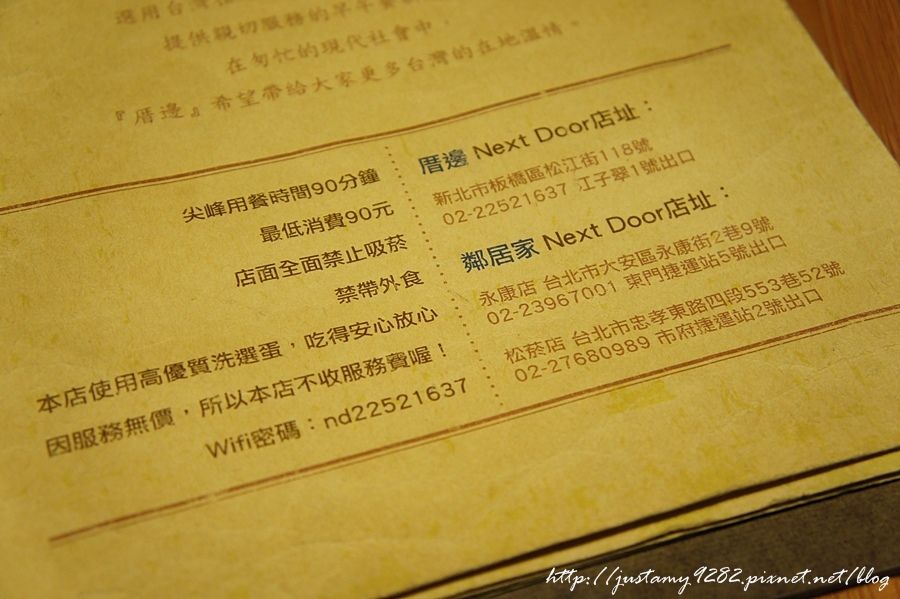 選用台灣
提供親切服務的早午
在匆忙的現代社會中，
『厝邊』希望帶給大家更多台灣的在地溫情。
尖峰用餐時間90分鐘
最低消費90元
店面全面禁止吸菸
禁帶外食
本店使用高優質洗選蛋，吃得安心放心
因服務無價，所以本店不收服務費喔！
Wifi密碼：nd22521637
厝邊 Next Door店址：
新北市板橋區松江街118號
02-22521637 江子翠1號出口
鄰居家 Next Door店址：
永康店 台北市大安區永康街2巷9號
02-23967001 東門捷運站5號出口
松菸店 台北市忠孝東路四段553巷52號
02-27680989 市府捷運站2號出口
http://justamy9282.pixnet.net/blog